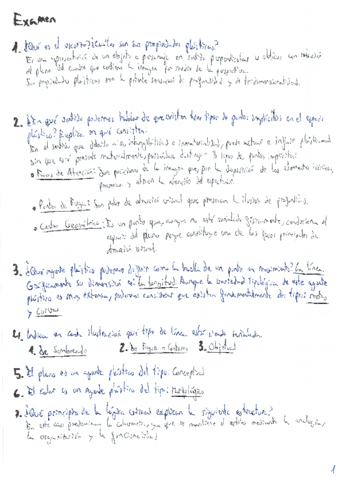 Examen
1. ¿Qué es el escorzo? ¿Cuáles son sus propiedades plásticas?
Es una representación de un objeto o personaje en sentido perpendicular u oblicuo con relación
al plano del cuadro que contiene la imagen por medio de la perspectiva.
Sus propiedades plásticas son la potente sensación de profundidad y de tridimensionalidad.
2. ¿En qué sentido podemos hablar de que existen tres tipos de puntos implícitos en el espacio
plástico? Explica en qué consisten.
En el sentido que debido a su intangibilidad e inmaterialidad, puede actuar e influir plásticamente
sin que esté presente materialmente, podemos distinguir 3 tipos de puntos implícitos:
• Focos de Atención: Son posiciones de la imagen que, por la disposición de los elementos icónicos,
provocan y atraen la atención del espectador.
• Puntos de Fuga: Son polos de atención visual que promueven la ilusión de profundidad.
• Centro Geométrico: Es un punto que, aunque no esté señalado físicamente, condiciona el
espacio del plano porque constituye uno de los focos principales de
atracción visual.
3. ¿Qué agente plástico podemos definir como la huella de un punto en movimiento? La línea.
Gráficamente su dimensión es: la longitud. Aunque la variedad tipológica de este agente
plástico es muy extensa, podemos considerar que existen fundamentalmente dos tipos: rectas
y curvas
4. Indica en cada ilustración qué tipo de línea está siendo señalada.
1. De Sombreado 2. De Figura o Contorno 3. Objetual
5. El plano es un agente plástico del tipo: Conceptual
6. El color es un agente plástico del tipo: Morfológico
7. ¿Qué principio de la lógica visual explican la siguiente estructura?
En este caso predomina la coherencia, ya que se mantiene el estilo mediante la analogía,
la organización y la
1